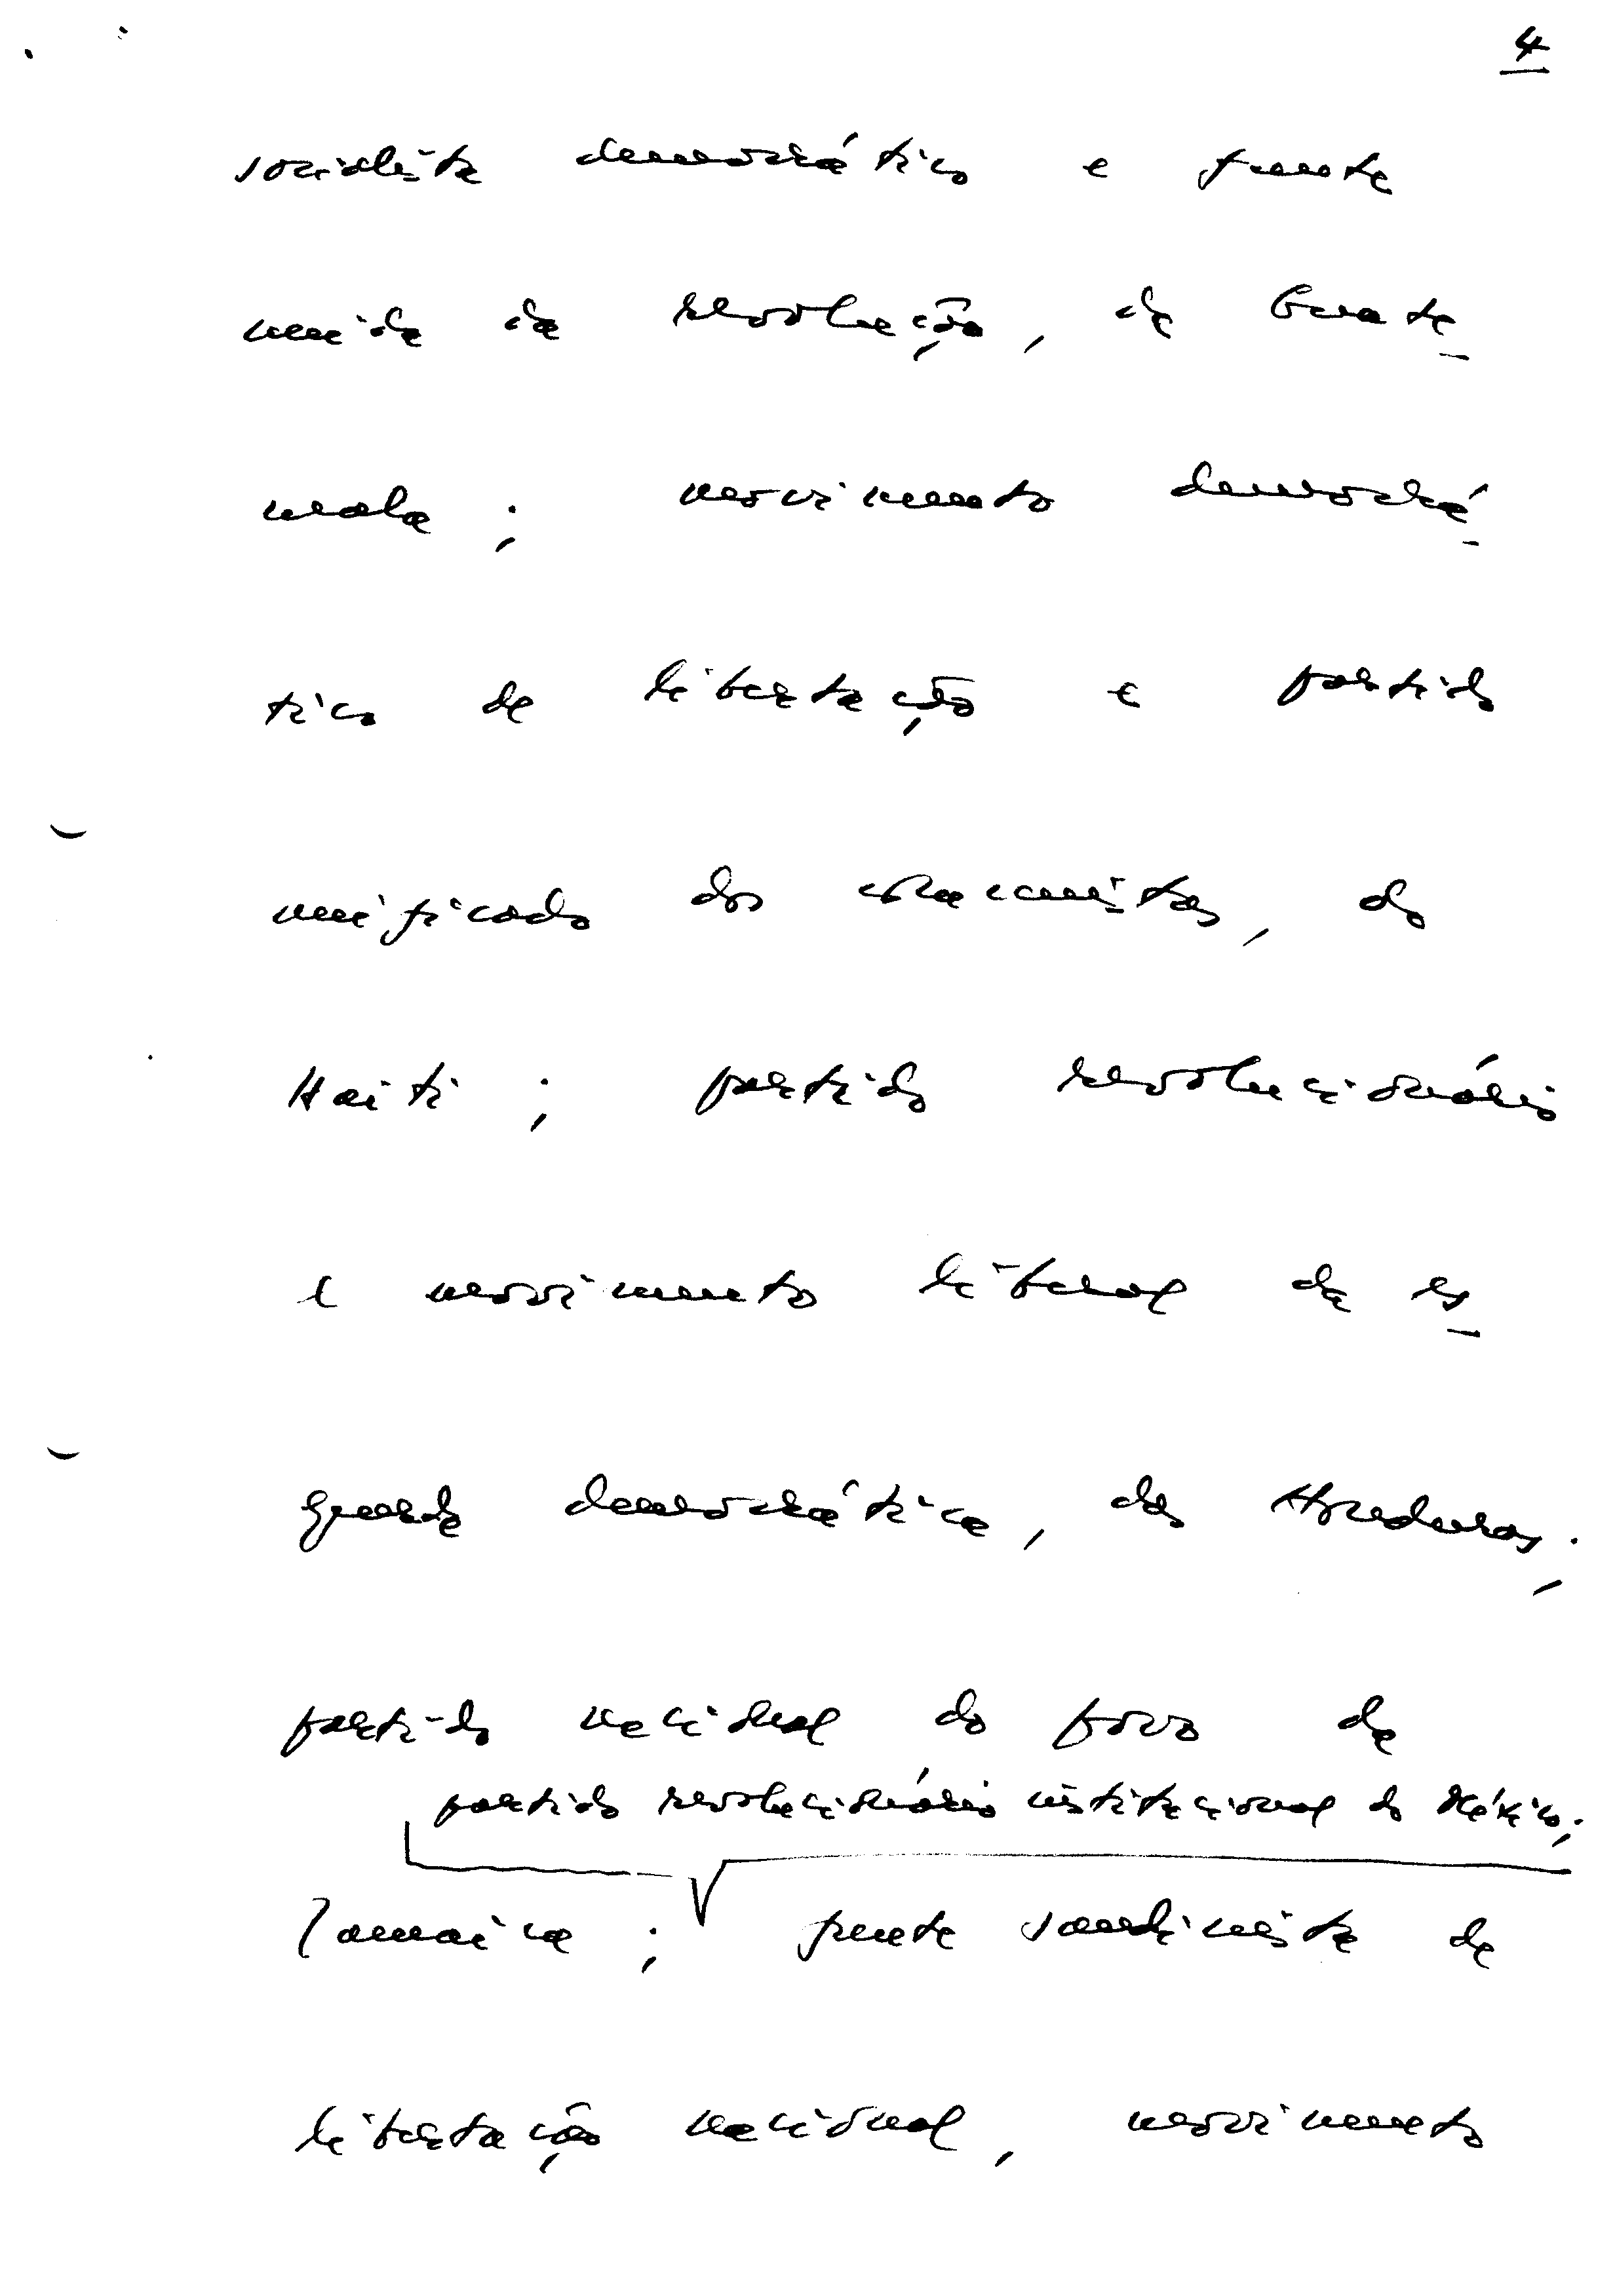 4
socialista democrático e frente
unida da revolução, da Guate
mala; movimento democrá
tico de libertação e partido
unificado dos comunistas, do
Haiti; partido revolucionário
e movimento liberal da es
querda democrática, das Honduras;
partido nacional do povo da
partido revolucionário institucional do México;
Jamaica; frente sandinista de
libertação nacional, movimento